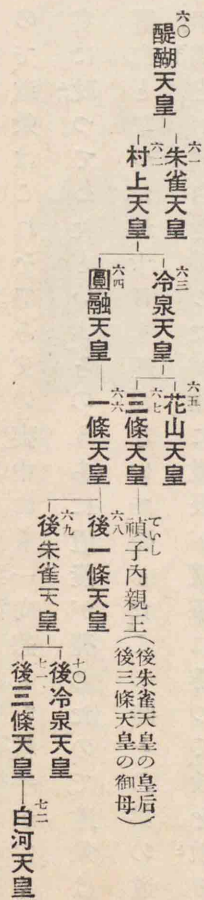 六〇
醍醐天皇
六一
朱雀天皇
六二
村上天皇
六三
冷泉天皇
六四
圓融天皇
六五
花山天皇
六七
三條天皇
禎子內親王
ていし
(後朱雀天皇の皇后
後三條天皇の御母)
六六
一條天皇
六八
後一條天皇
六九
後朱雀天皇
七〇
後冷泉天皇
七一
後三條天皇
七二
白河天皇